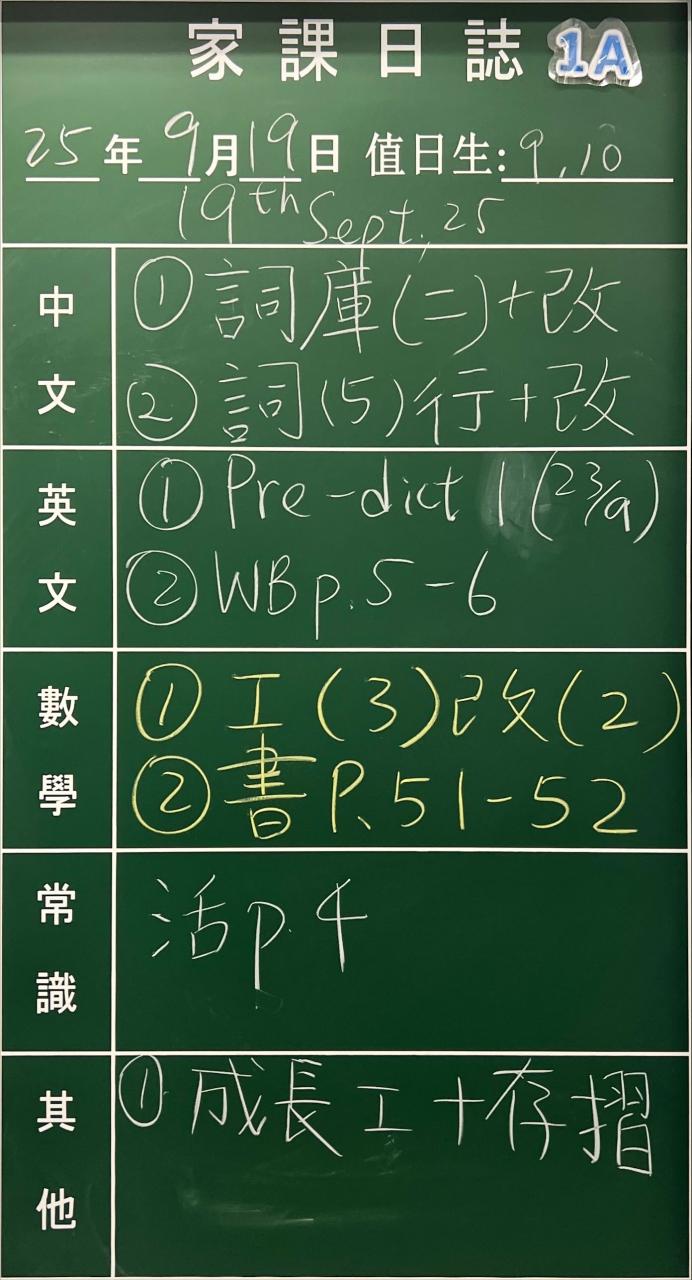 家課日誌 1A
25年9月19日 值日生:9,10
19th Sept, 25
中文
① 詞庫(二)+改
② 詞(5)行+改
英文
① Pre-dict 1 (23/9)
② WB p.5-6
數學
① 工(3)改(2)
② 書 P.51-52
常識
活 p.4
其他
① 成長工+存摺